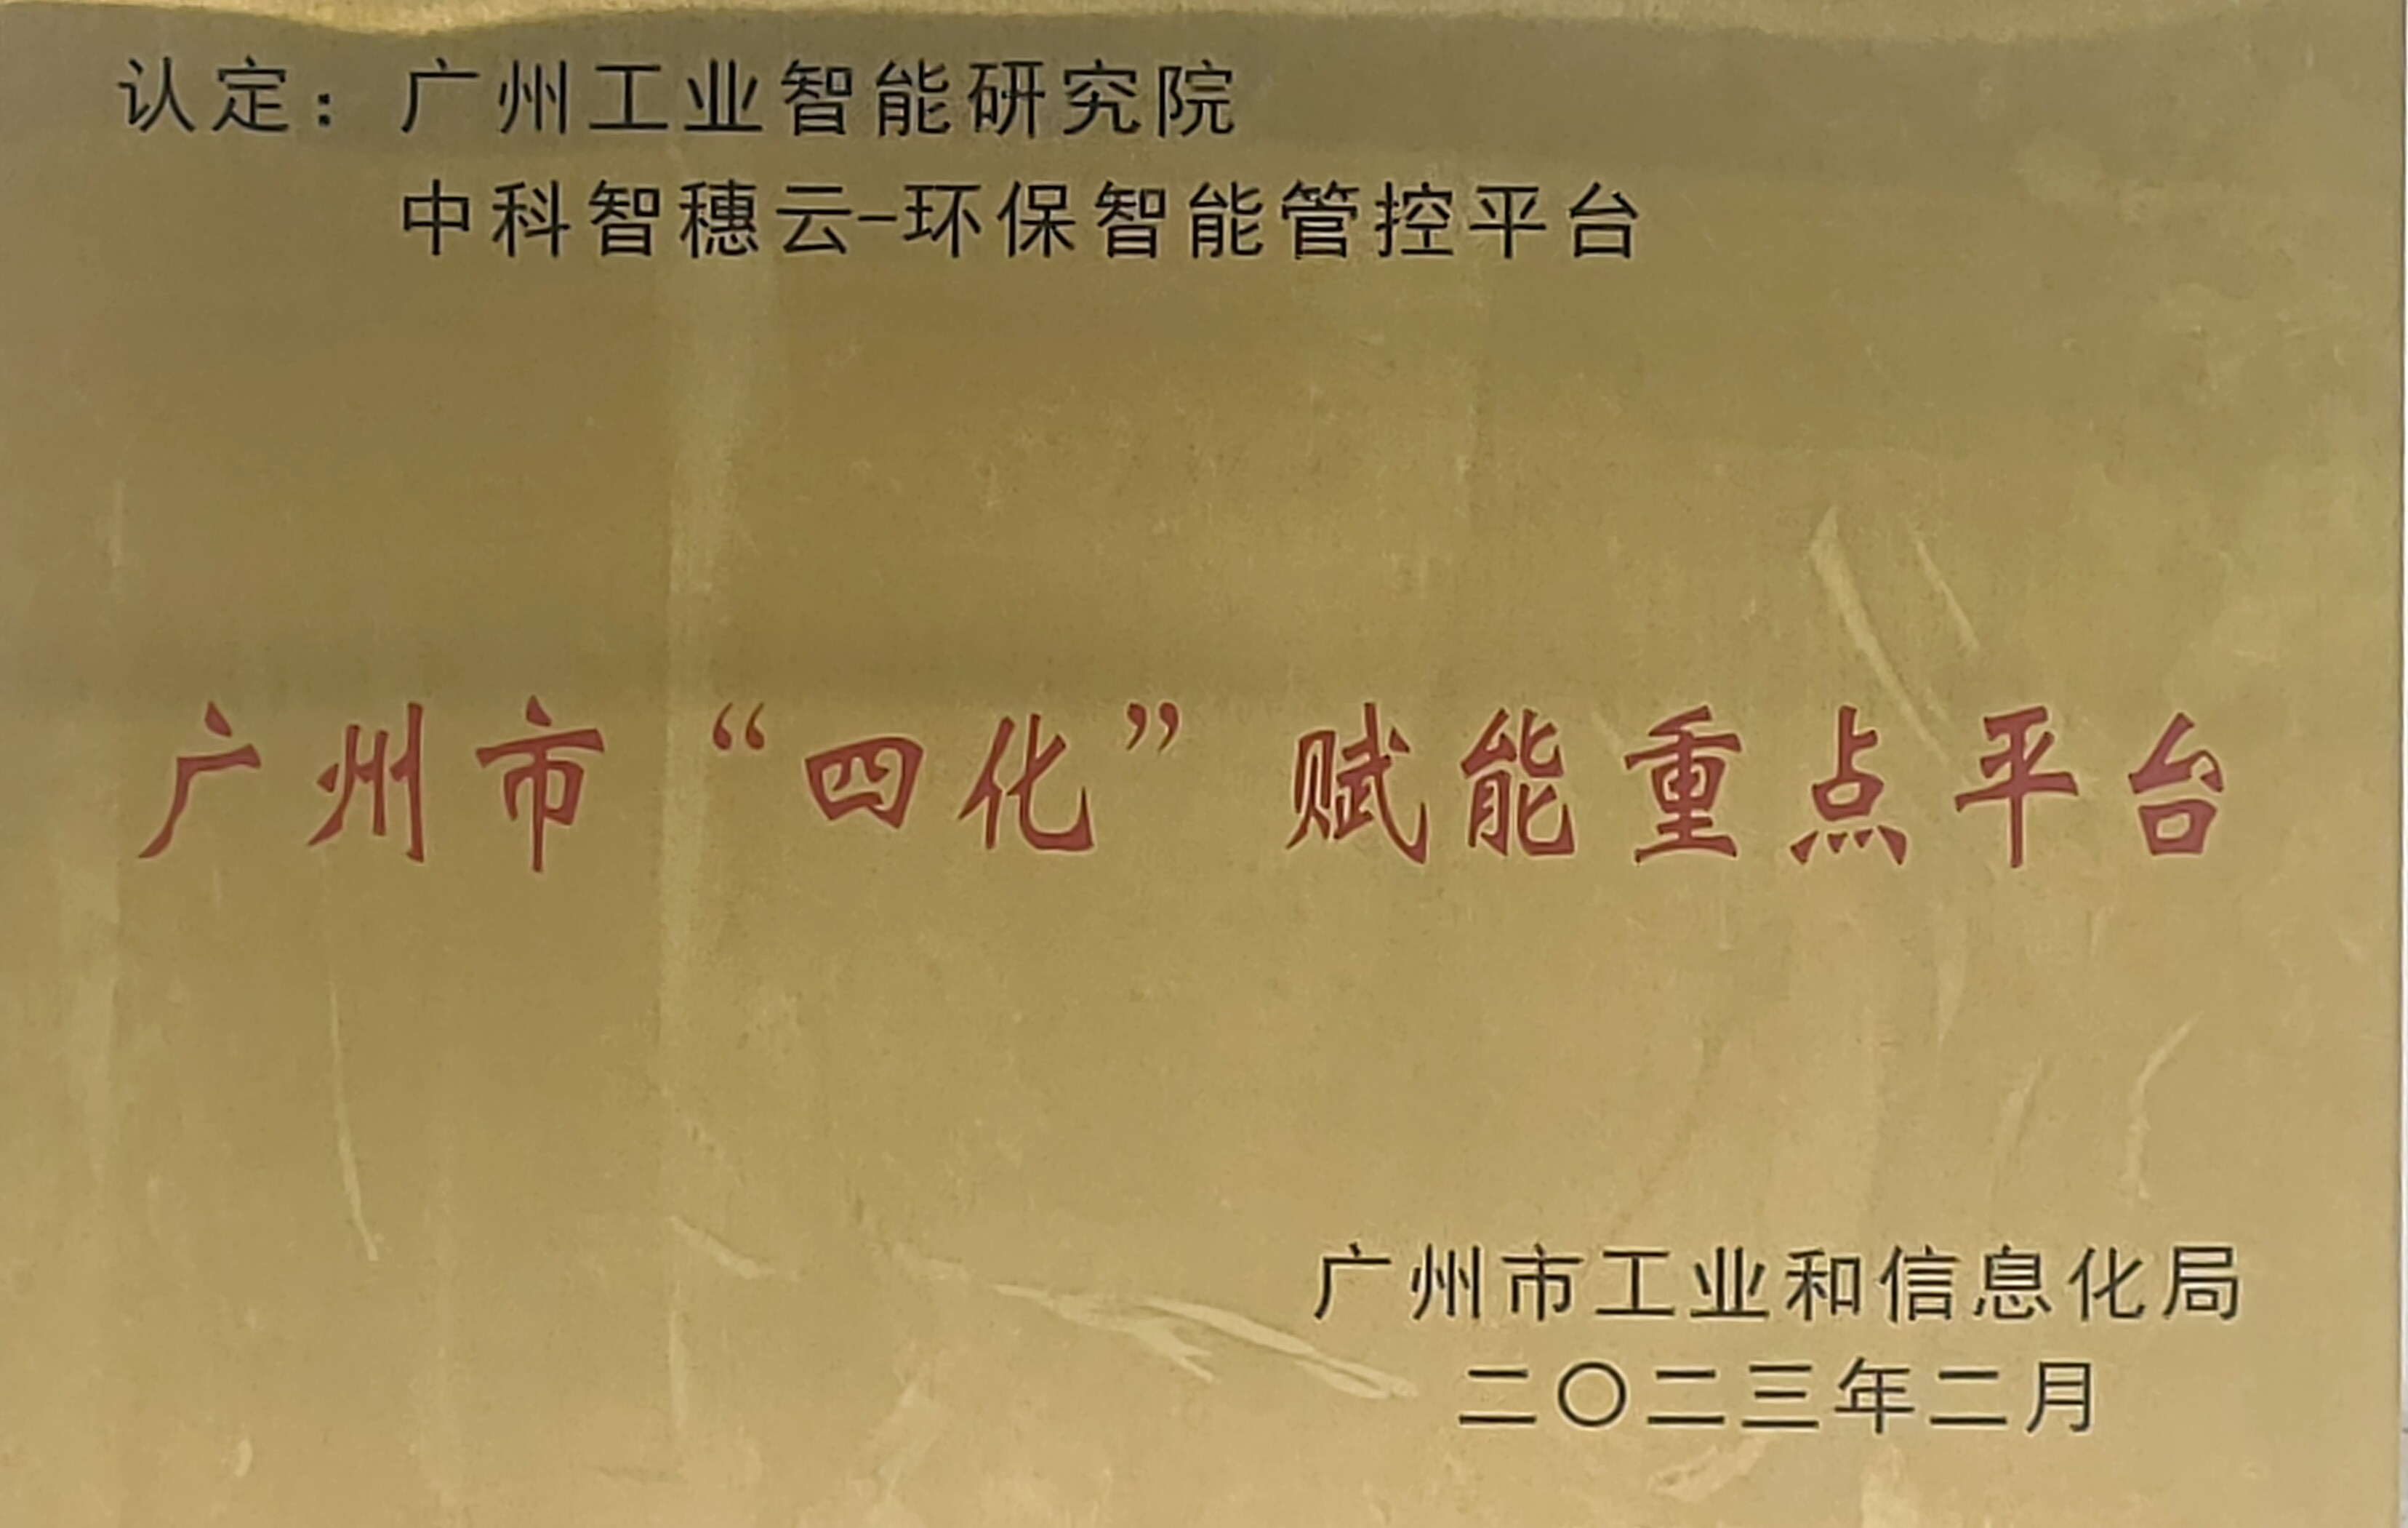 认定：广州工业智能研究院
中科智穗云-环保智能管控平台
广州市“四化”赋能重点平台
广州市工业和信息化局
二〇二三年二月